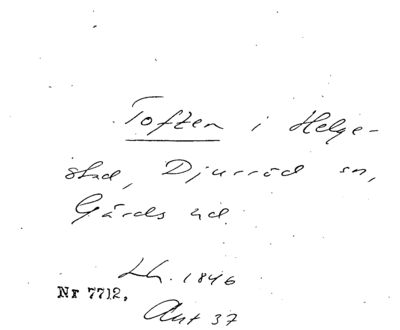 Toften i Helge-
stad, Djurröd sn,
Gärds hd
Lh. 1846
Nr 7712,
Akt 37